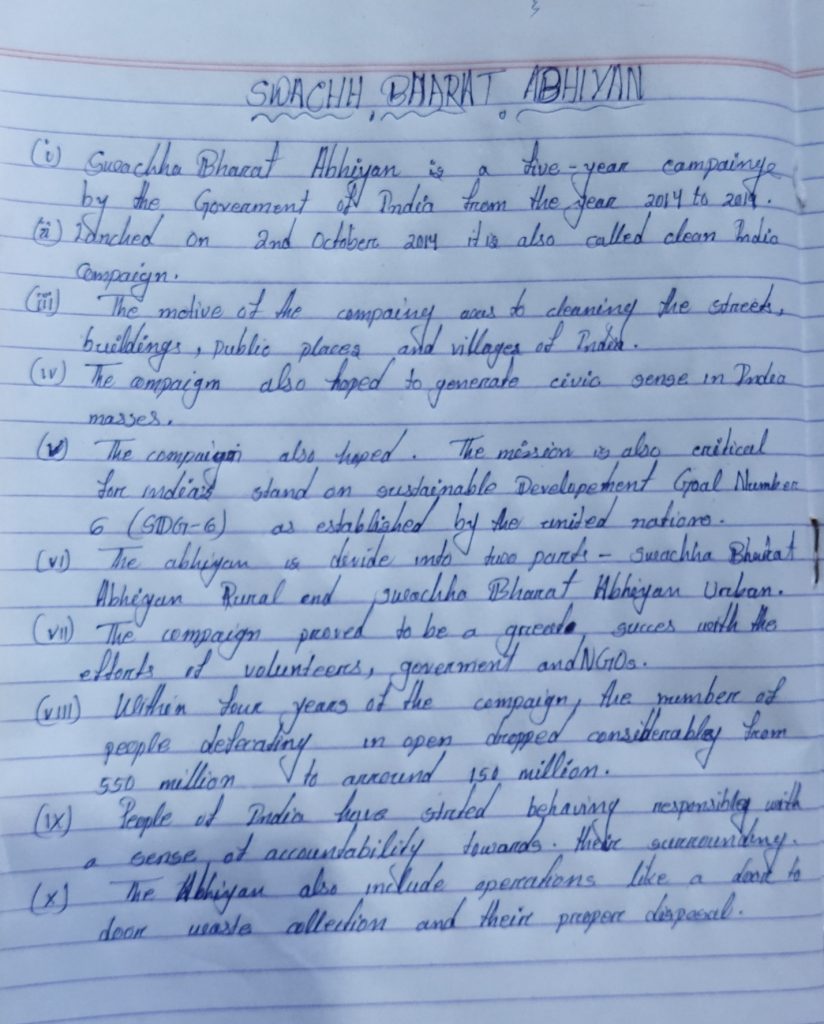 SWACHH BHARAT ABHIYAN
(i) Swachha Bharat Abhiyan is a five-year campainge
by the Goverment of India from the year 2014 to 2019.
(ii) Lanched on 2nd October 2014 it is also called clean India
Campaign.
(iii) The motive of the compaing was to cleaning the streets,
buildings, public places and villages of India.
(iv) The campaigm also hoped to generate civic sense in India
masses.
(v) The compaign also hoped. The mission is also critical
for india's stand on sustainable Developement Goal Number
6 (SDG-6) as established by the united nations.
(vi) The abhiyan is devide into two parts - swachha Bharat
Abhiyan Rural end swachha Bharat Abhiyan Urban.
(vii) The compaign proved to be a greate succes with the
efforts of volunteers, goverment and NGOs.
(viii) Within four years of the compaign, the number of
people defecating in open dropped considerabley from
550 million to arround 150 million.
(ix) People of India have strted behaving responsibley with
a sense of accountability towards. their surrounding.
(x) The Abhiyan also include operations like a door to
door waste collection and their proper disposal.